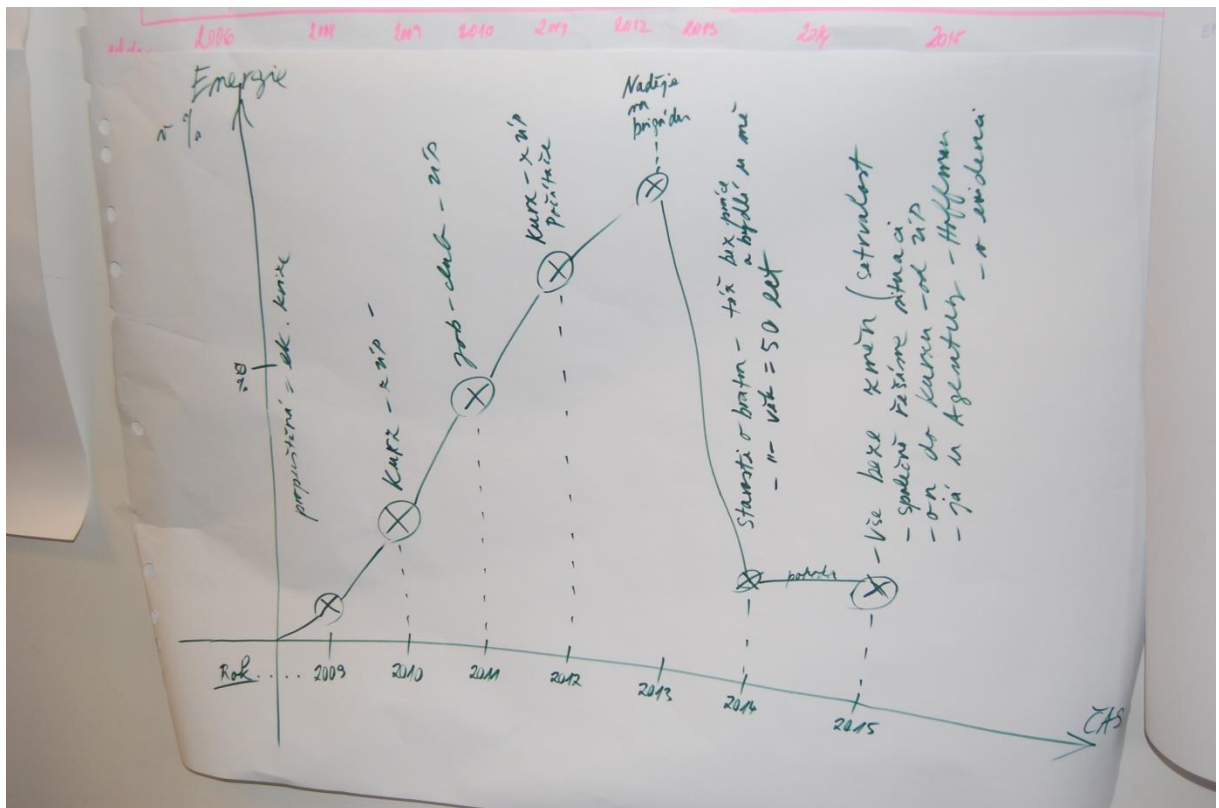 2006 2009 2010 2012 2013 2014 2015
Energie
v %
propuštění = ek. krize
Kurz - z ÚP -
Job-club - z ÚP
Kurz - z ÚP
Počítače
Naděje
na
brigádu
Starosti o bratra - též bez práce
a bydlí u mě
- " - věk = 50 let
- Vše beze změn (setrvalost
- společně řešíme situaci
- on do kurzu - od ÚP
- já u Agentury - Hoffman
- v evidenci
pohoda
Rok ..... 2009 2010 2011 2012 2013 2014 2015
ČAS